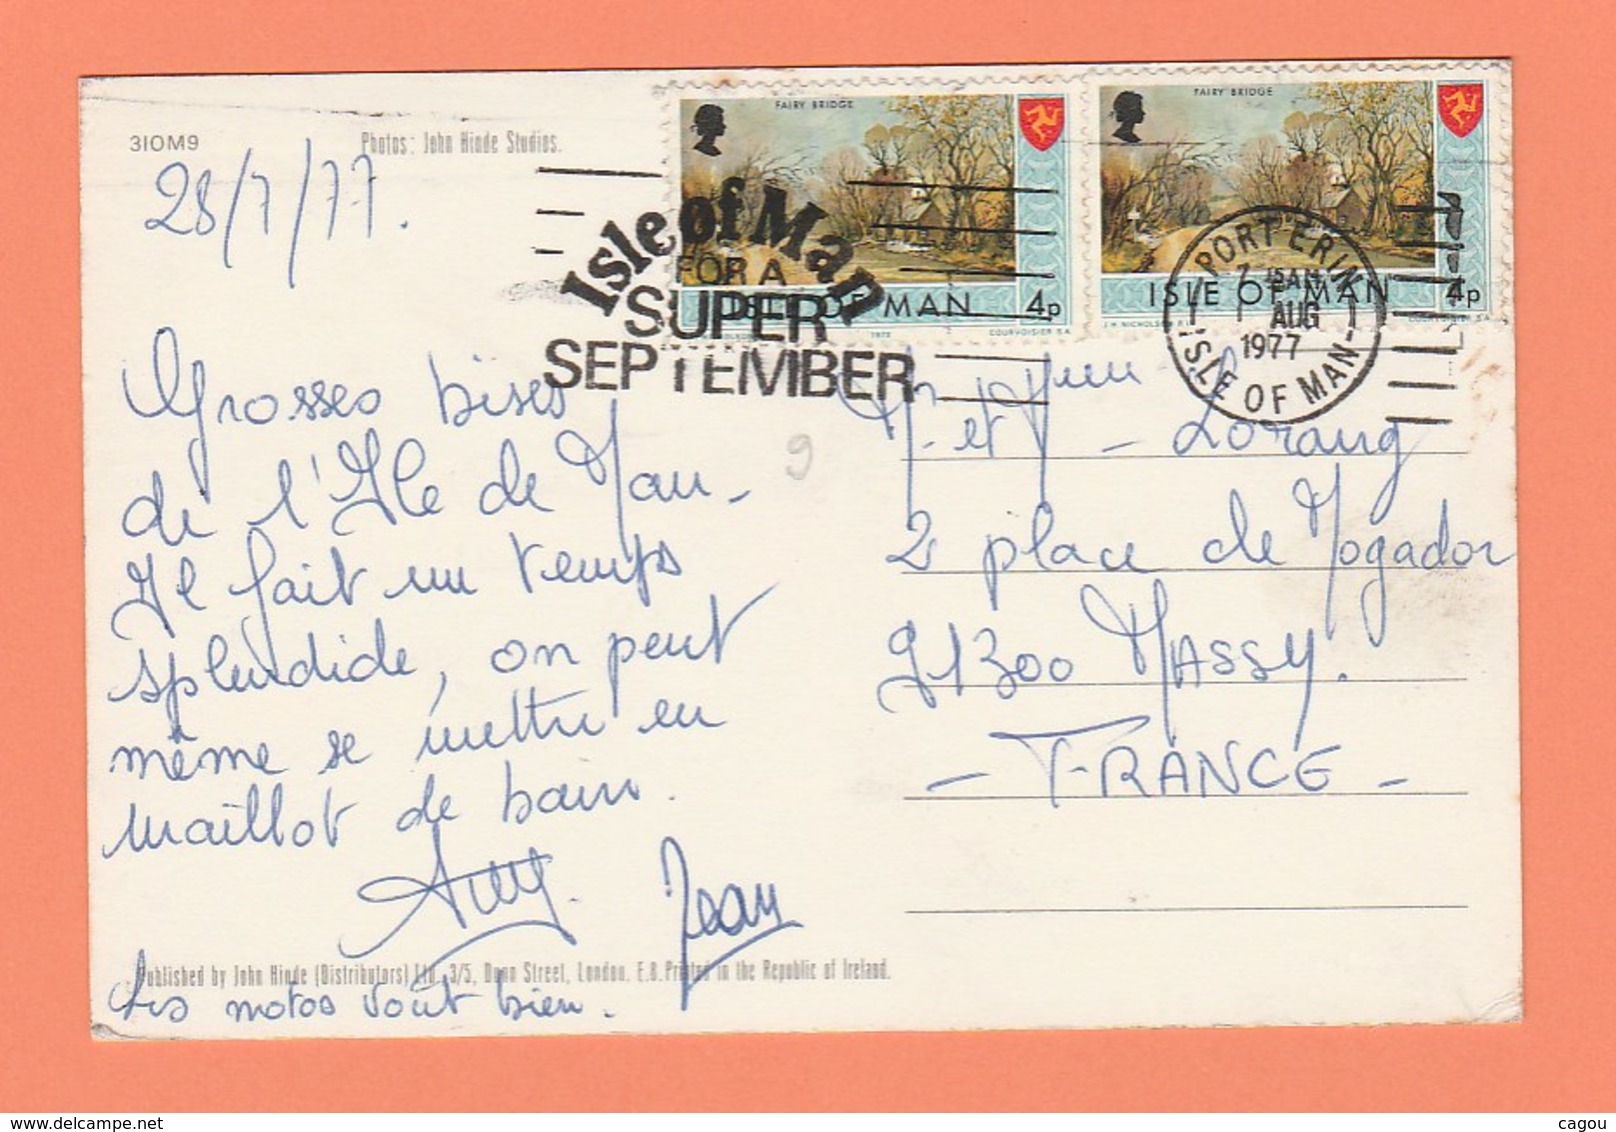 3IOM9
Photos: John Hinde Studios.
28/7/77.
FAIRY BRIDGE
ISLE OF MAN
4p
COURVOISIER S.A.
FAIRY BRIDGE
ISLE OF MAN
4p
J.H. NICHOLSON R.I.
COURVOISIER S.A.
Isle of Man
FOR A
SUPER
SEPTEMBER
PORT ERIN
AUG
1977
ISLE OF MAN
Grosses bises
de l'Ile de Man -
Il fait un temps
splendide, on peut
même se mettre en
maillot de bain.
Jean
Les motos vont bien.
9
M. et Mme Lorang
2 place de Mogador
91300 MASSY.
- FRANCE -
Published by John Hinde (Distributors) Ltd. 3/5, Dunn Street, London. E.8. Printed in the Republic of Ireland.
delcampe.net
cagou